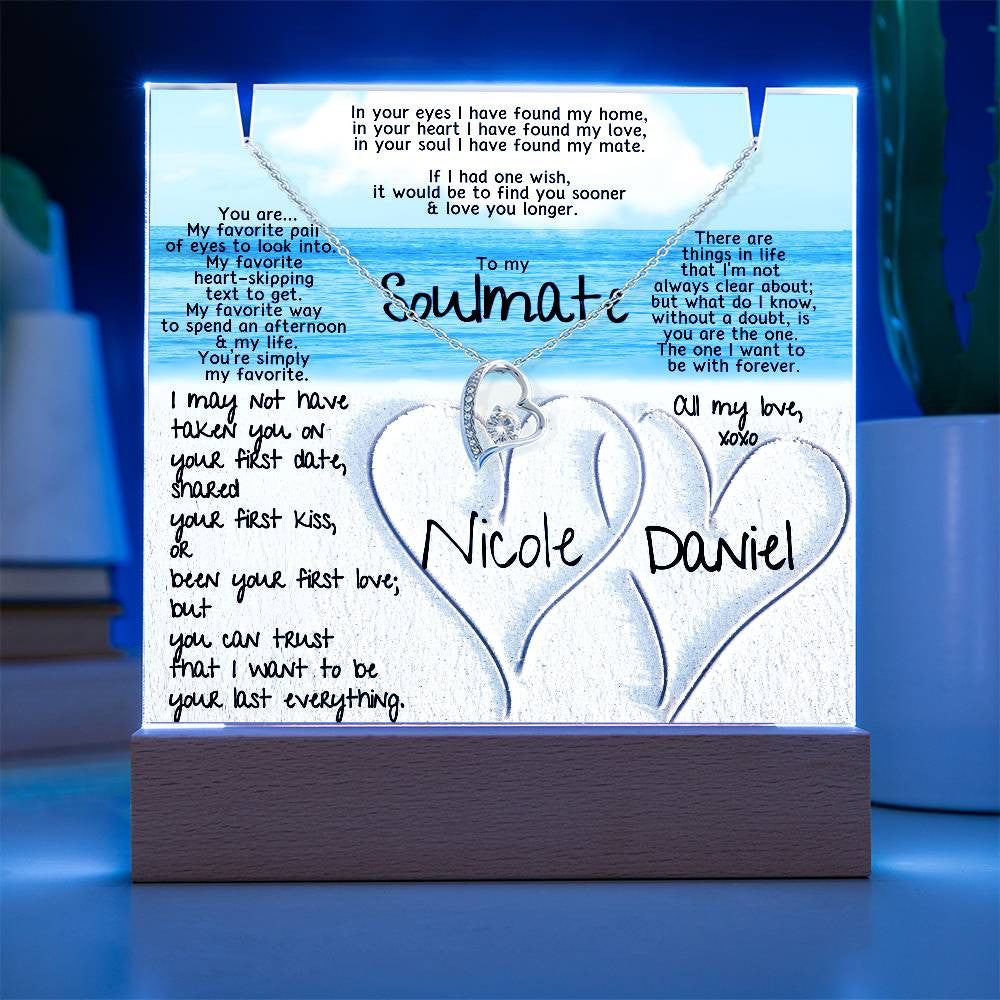 In your eyes I have found my home,
in your heart I have found my love,
in your soul I have found my mate.
If I had one wish,
it would be to find you sooner
& love you longer.
You are...
My favorite pair
of eyes to look into..
My favorite
heart-skipping
text to get.
My favorite way
to spend an afternoon
& my life.
You're simply
my favorite.
To my
Soulmate
There are
things in life
that I'm not
always clear about;
but what do I know,
without a doubt, is
you are the one.
The one I want to
be with forever.
I may not have
taken you on
your first date,
shared
your first kiss,
or
been your first love;
but
you can trust
that I want to be
your last everything.
All my love,
xoxo
Nicole
Daniel